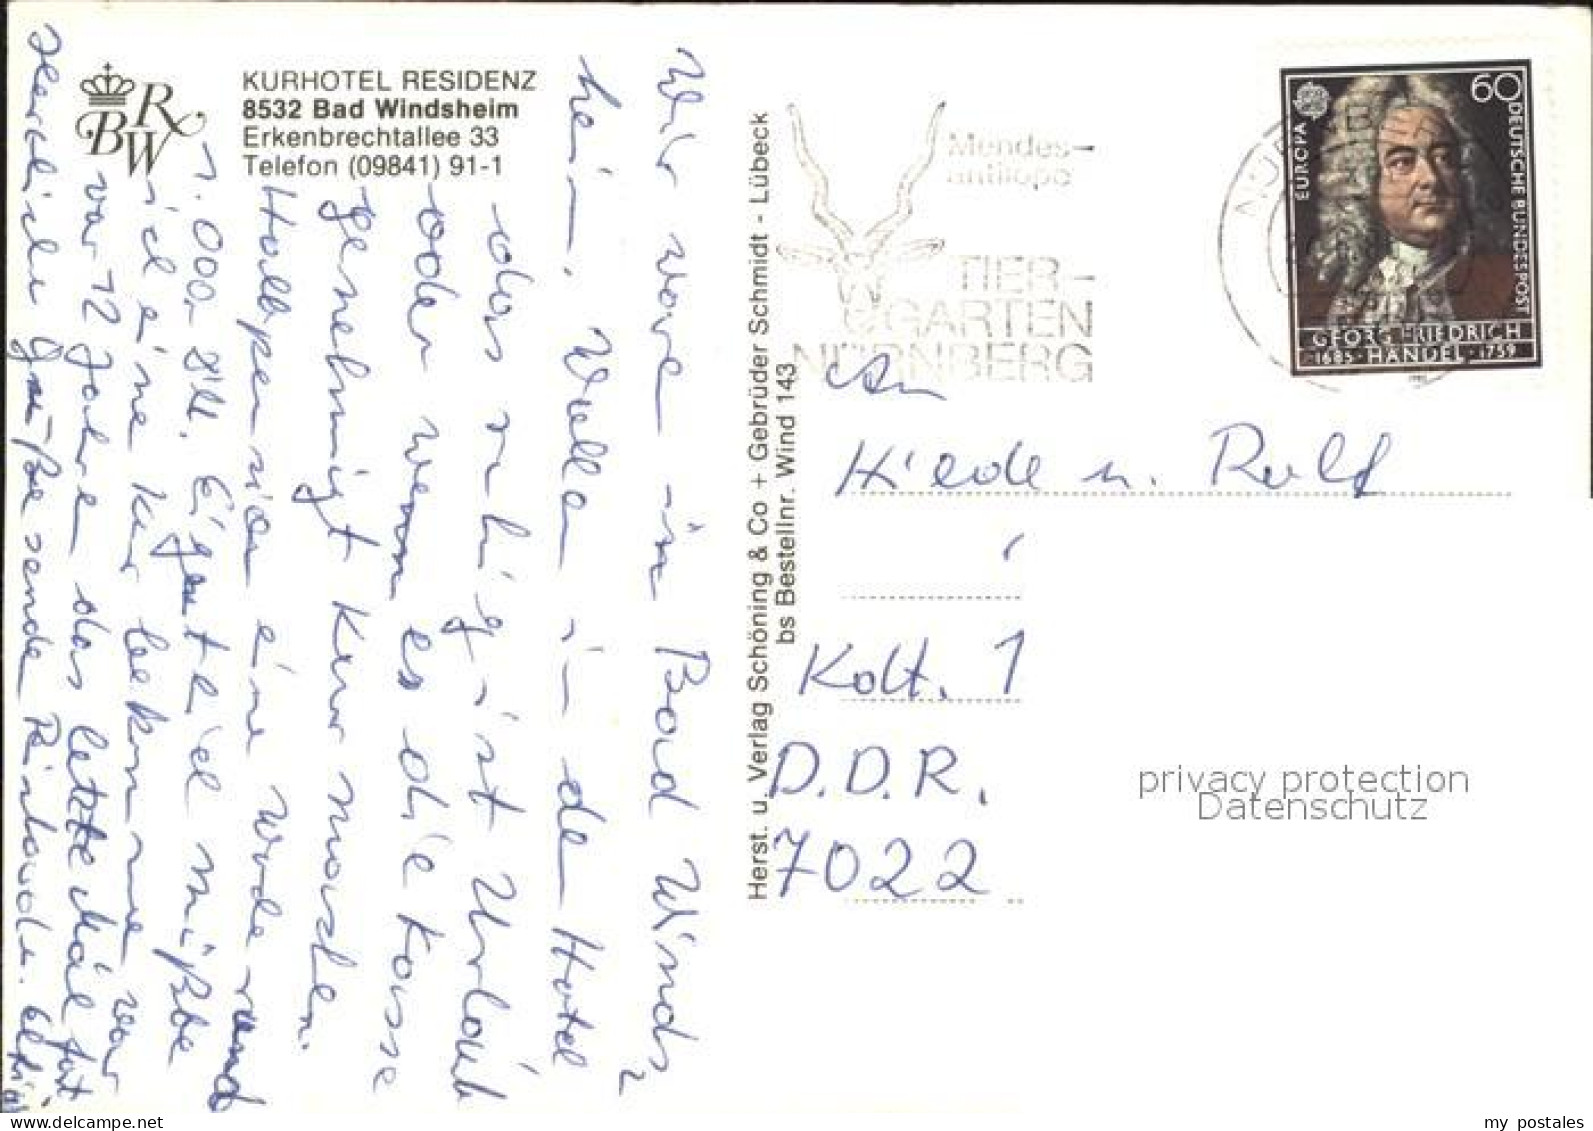 KURHOTEL RESIDENZ
8532 Bad Windsheim
Erkenbrechtallee 33
Telefon (09841) 91-1
BRW
Wir ware in Bad Winds
heim. Wille in de Hotel
das ruhig ist Urlaub
oder wenn es die Kasse
genehmigt Kur machen.
Halbpension eine Wode rund
1.000,- DM. Eigentlich müßte
ich eine Kur bekomme war
vor 12 Jahre das letzte Mal fort
Herzliche Grüße sende
Herst. u. Verlag Schöning & Co + Gebrüder Schmidt - Lübeck
bs Bestellnr. Wind 143
Mendes-
antilope
TIER-
GARTEN
NÜRNBERG
60
EUROPA
DEUTSCHE BUNDESPOST
GEORG FRIEDRICH
1685 · HÄNDEL · 1759
An
u. Rolf
Kolt. 1
D.D.R.
7022
privacy protection
Datenschutz
my_postales
www.delcampe.net